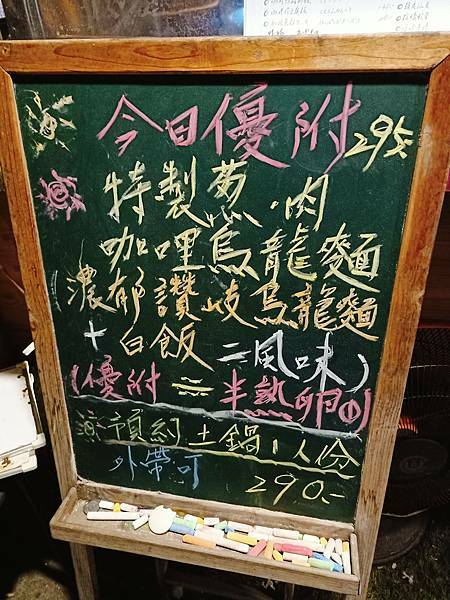 今日優附 295元
特製蔥·肉
咖哩烏龍麵
濃郁讚岐烏龍麵
+白飯 二風味)
(優附=半熟卵①)
預約土鍋1人份
外帶可 290.-